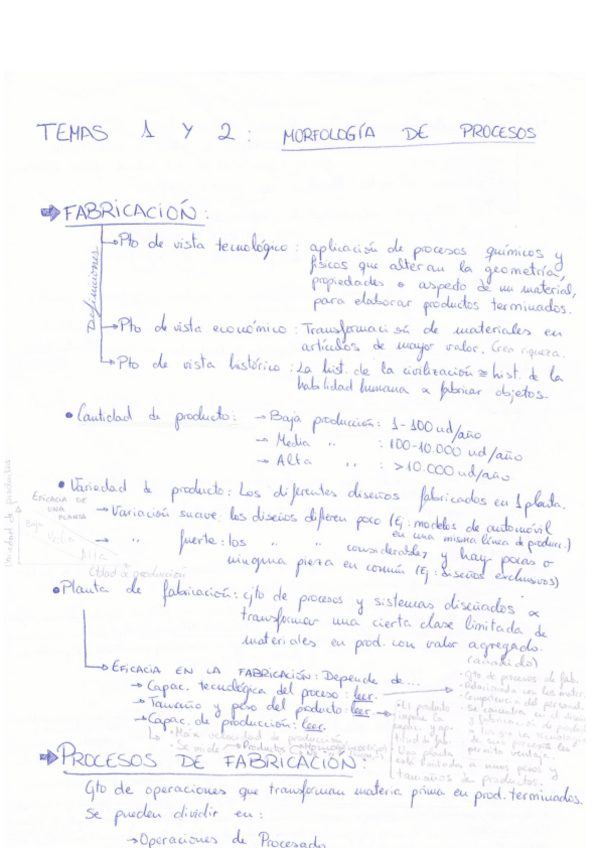 TEMAS 1 Y 2: MORFOLOGÍA DE PROCESOS
⇒ FABRICACIÓN:
Definiciones
→ Pto de vista tecnológico: aplicación de procesos químicos y
físicos que alteran la geometría,
propiedades o aspecto de un material,
para elaborar productos terminados.
→ Pto de vista económico: Transformación de materiales en
artículos de mayor valor. Crea riqueza.
→ Pto de vista histórico: La hist. de la civilización ≈ hist. de la
habilidad humana x fabricar objetos.
• Cantidad de producto: → Baja producción: 1-100 ud/año
→ Media " : 100-10.000 ud/año
→ Alta " : >10.000 ud/año
• Variedad de producto: Los diferentes diseños fabricados en 1 planta.
→ Variación suave: los diseños difieren poco (Ej: modelos de automóvil
en una misma línea de producc.)
→ " fuerte: los " " considerable y hay pocas o
ninguna pieza en común (Ej: diseños exclusivos)
EFICACIA DE
UNA
PLANTA
Baja
Media
Alta
Cantidad de producción
• Planta de fabricación: cjto de procesos y sistemas diseñados x
transformar una cierta clase limitada de
materiales en prod. con valor agregado.
(añadido)
→ EFICACIA EN LA FABRICACIÓN: Depende de...
→ Capac. tecnológica del proceso: leer.
→ Tamaño y peso del producto: leer.
→ Capac. de producción: leer.
• Máx velocidad de producción
• Cjto de procesos de fab.
• Relacionado con los mater.
• Competencia del personal
• El producto
⇒ PROCESOS DE FABRICACIÓN:
Cjto de operaciones que transforman materia prima en prod. terminados.
Se pueden dividir en:
→ Operaciones de Procesado